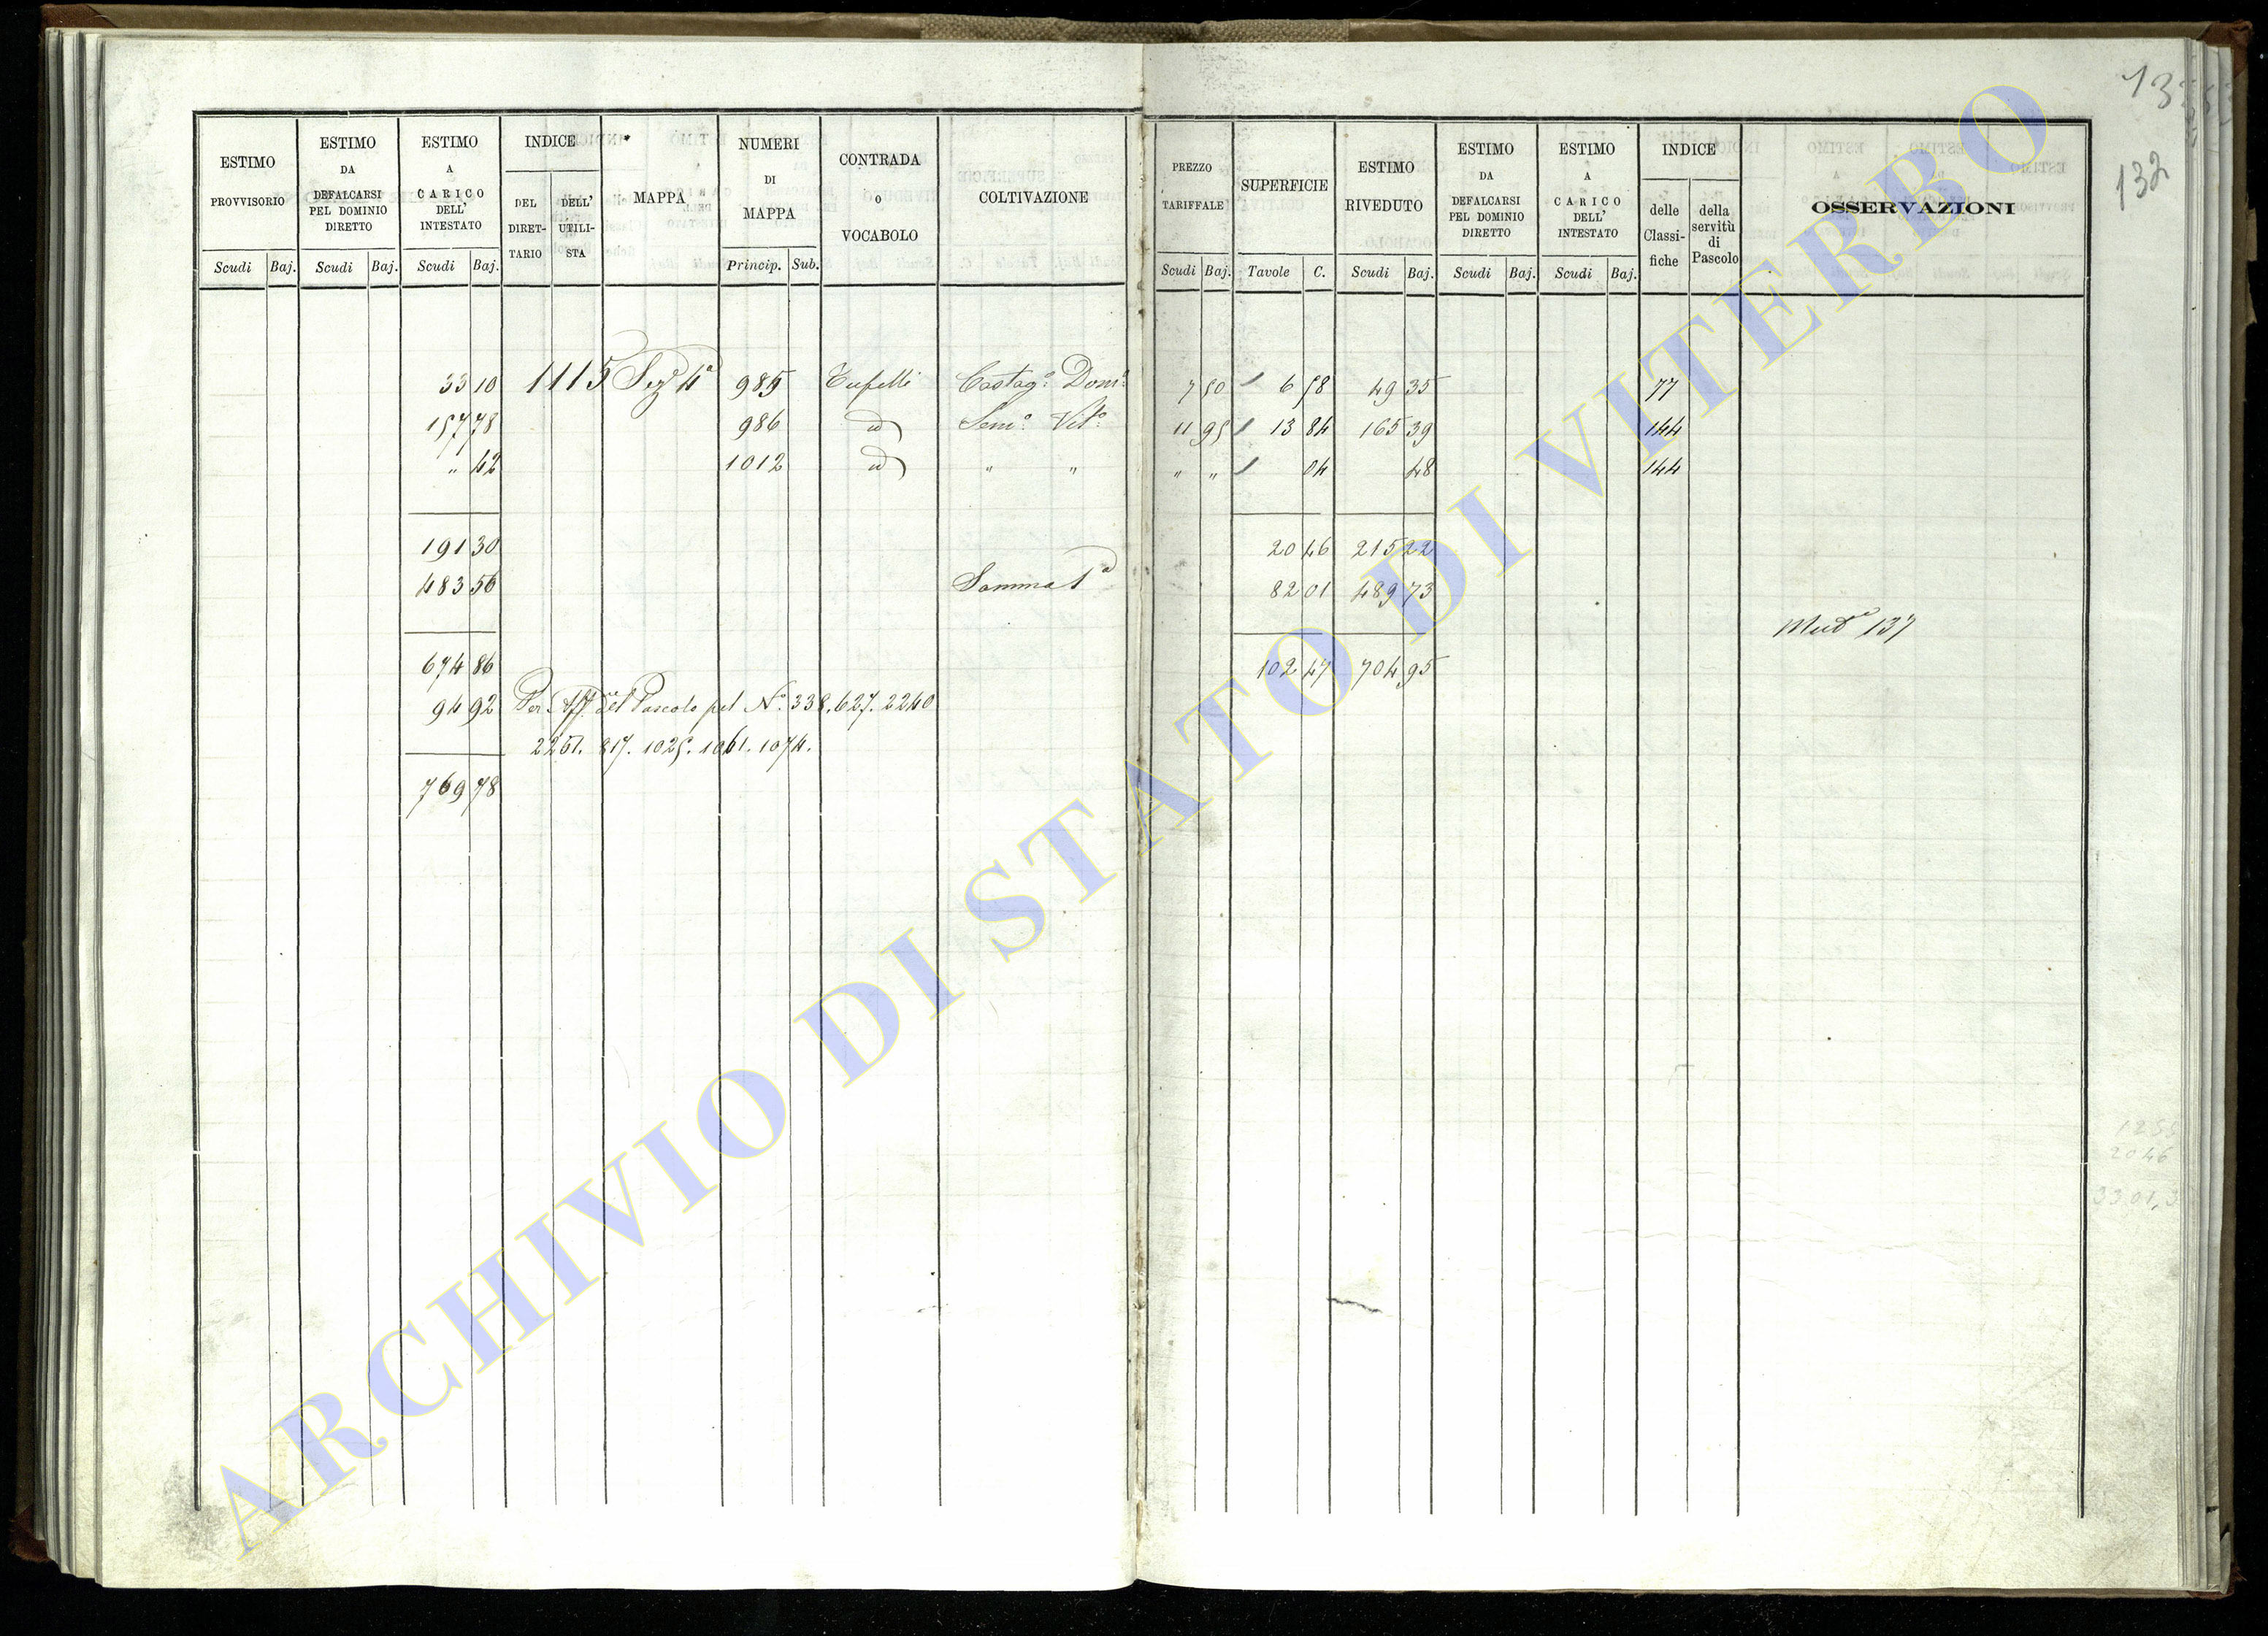 132
ESTIMO PROVVISORIO Scudi Baj.
ESTIMO DA DEFALCARSI PEL DOMINIO DIRETTO Scudi Baj.
ESTIMO A CARICO DELL' INTESTATO Scudi Baj.
INDICE
DEL DIRET-TARIO
DELL' UTILI-STA
MAPPA
NUMERI DI MAPPA Princip. Sub.
CONTRADA O VOCABOLO
COLTIVAZIONE
PREZZO TARIFFALE Scudi Baj.
SUPERFICIE Tavole C.
ESTIMO RIVEDUTO Scudi Baj.
ESTIMO DA DEFALCARSI PEL DOMINIO DIRETTO Scudi Baj.
ESTIMO A CARICO DELL' INTESTATO Scudi Baj.
INDICE
delle Classi-fiche
della servitù di Pascolo
OSSERVAZIONI
33 10 1115 Sezᵉ 4ª 985 Tufelli Castagº Domº 7 50 6 58 49 35 77
157 78 986 id Semº Vitº 11 95 13 84 165 39 144
" 42 1012 id " " " " 04 48 144
191 30 20 46 215 22
483 56 Somma 1ª 82 01 489 73
Mutª 137
674 86 102 47 704 95
94 92 Per Aff.ne del Pascolo pel Nº 338. 627. 2240
2251. 817. 1025. 1061. 1074.
769 78
2046
ARCHIVIO DI STATO DI VITERBO